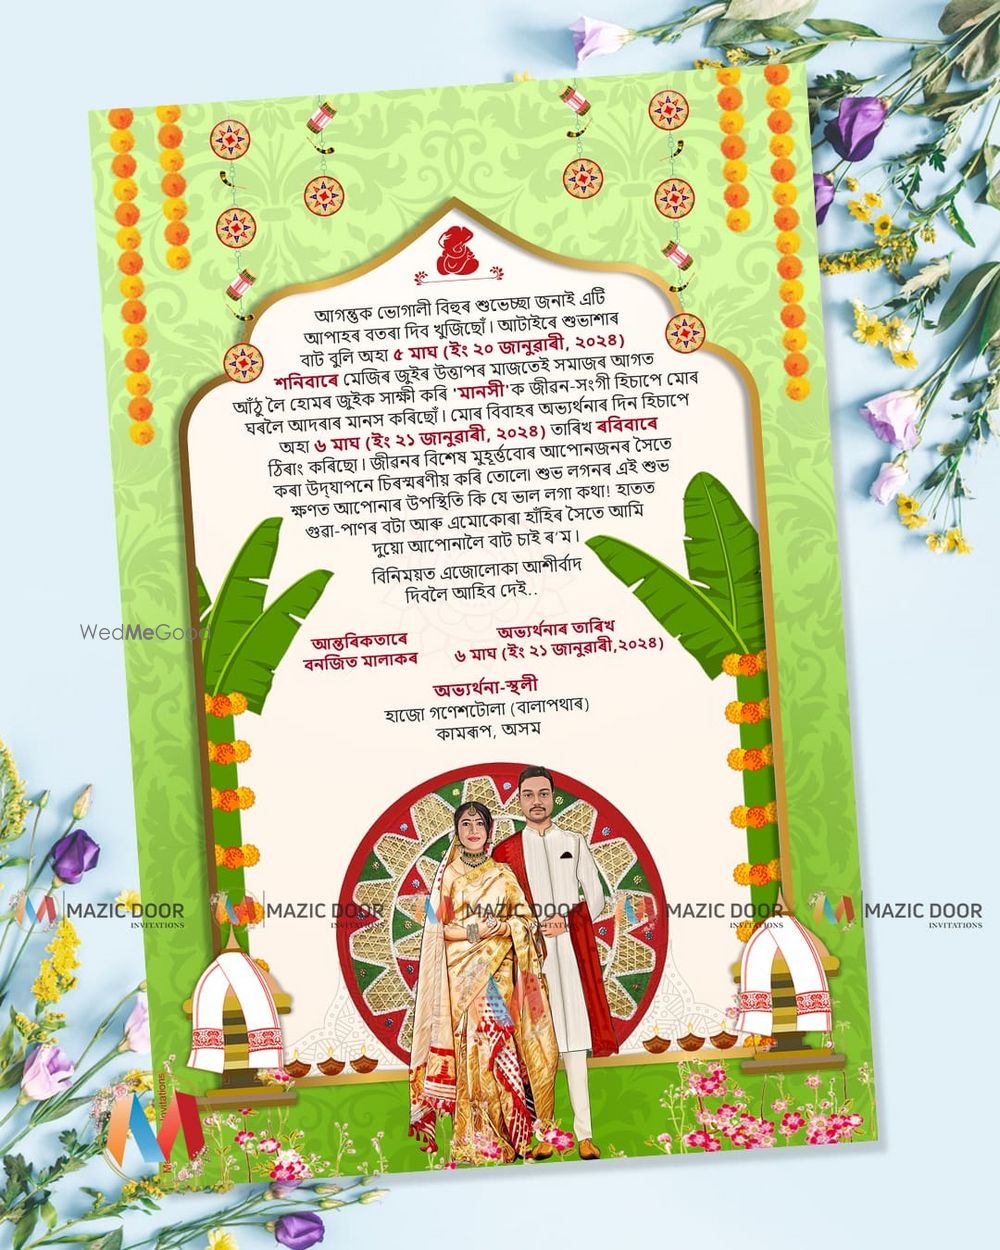 আগন্তুক ভোগালী বিহুৰ শুভেচ্ছা জনাই এটি
আপাহৰ বতৰা দিব খুজিছোঁ। আটাইৰে শুভাশাৰ
বাট বুলি অহা ৫ মাঘ (ইং ২০ জানুৱাৰী, ২০২৪)
শনিবাৰে মেজিৰ জুইৰ উত্তাপৰ মাজতেই সমাজৰ আগত
আঁঠু লৈ হোমৰ জুইক সাক্ষী কৰি 'মানসী'ক জীৱন-সংগী হিচাপে মোৰ
ঘৰলৈ আদৰাৰ মানস কৰিছোঁ। মোৰ বিবাহৰ অভ্যৰ্থনাৰ দিন হিচাপে
অহা ৬ মাঘ (ইং ২১ জানুৱাৰী, ২০২৪) তাৰিখ ৰবিবাৰে
ঠিৰাং কৰিছো। জীৱনৰ বিশেষ মুহূৰ্ত্তবোৰ আপোনজনৰ সৈতে
কৰা উদ্‌যাপনে চিৰস্মৰণীয় কৰি তোলে৷ শুভ লগনৰ এই শুভ
ক্ষণত আপোনাৰ উপস্থিতি কি যে ভাল লগা কথা! হাতত
গুৱা-পাণৰ বটা আৰু এমোকোৰা হাঁহিৰ সৈতে আমি
দুয়ো আপোনালৈ বাট চাই ৰ'ম।
বিনিময়ত এজোলোকা আশীৰ্বাদ
দিবলৈ আহিব দেই..
আন্তৰিকতাৰে
বনজিত মালাকৰ
অভ্যৰ্থনাৰ তাৰিখ
৬ মাঘ (ইং ২১ জানুৱাৰী,২০২৪)
অভ্যৰ্থনা-স্থলী
হাজো গণেশটোলা (বালাপথাৰ)
কামৰূপ, অসম
WedMeGood
MAZIC DOOR INVITATIONS
MAZIC DOOR INVITATIONS
MAZIC DOOR INVITATIONS
MAZIC DOOR INVITATIONS
MAZIC DOOR INVITATIONS